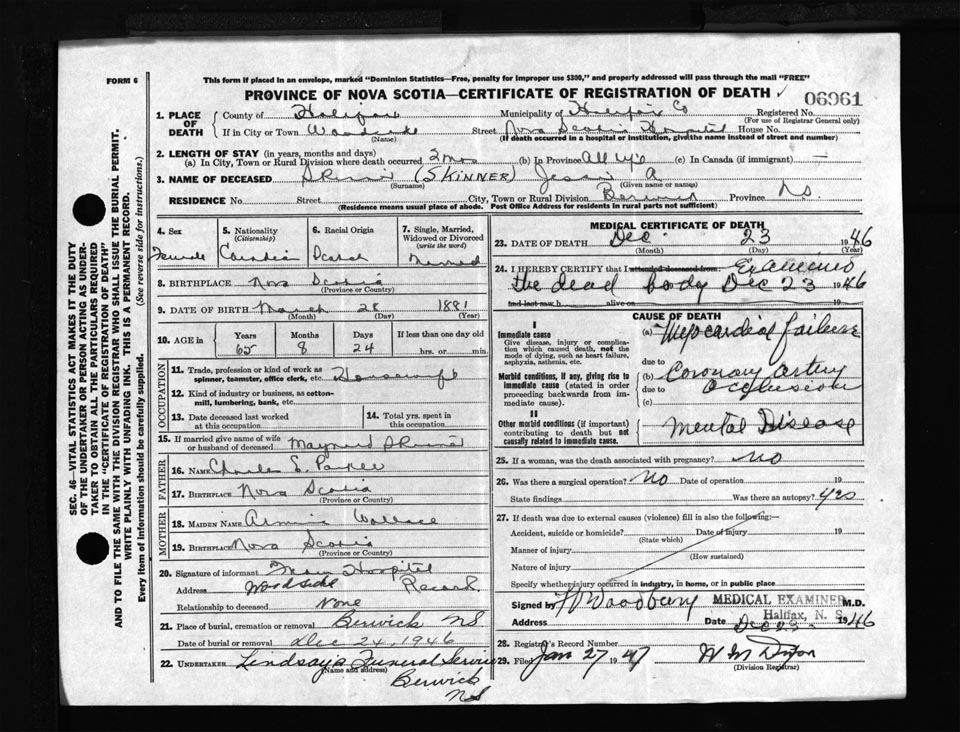 FORM 6
This form if placed in an envelope, marked "Dominion Statistics—Free, penalty for improper use $300," and properly addressed will pass through the mail "FREE"
PROVINCE OF NOVA SCOTIA—CERTIFICATE OF REGISTRATION OF DEATH ✓
06961
1. PLACE OF DEATH
County of Halifax Municipality of Halifax Co Registered No.
(For use of Registrar General only)
If in City or Town Woodside Street Nova Scotia Hospital House No.
(Name) (If death occurred in a hospital or institution, give the name instead of street and number)
2. LENGTH OF STAY (in years, months and days)
(a) In City, Town or Rural Division where death occurred 2 mos (b) In Province All life (c) In Canada (if immigrant) —
3. NAME OF DECEASED Skinner (SKINNER) Jessie A
(Surname) (Given name or names)
RESIDENCE No. Street City, Town or Rural Division Berwick Province NS
(Residence means usual place of abode. Post Office Address for residents in rural parts not sufficient)
4. Sex
Female
5. Nationality
(Citizenship)
Canadian
6. Racial Origin
Scotch
7. Single, Married, Widowed or Divorced
(write the word)
Married
8. BIRTHPLACE Nova Scotia
(Province or Country)
9. DATE OF BIRTH March 28 1881
(Month) (Day) (Year)
10. AGE in Years Months Days If less than one day old
65 8 24 hrs. or min.
OCCUPATION
11. Trade, profession or kind of work as spinner, teamster, office clerk, etc. Housewife
12. Kind of industry or business, as cotton-mill, lumbering, bank, etc.
13. Date deceased last worked at this occupation
14. Total yrs. spent in this occupation
15. If married give name of wife or husband of deceased Maynard Skinner
FATHER
16. NAME Charles S. Parker
17. BIRTHPLACE Nova Scotia
(Province or Country)
MOTHER
18. MAIDEN NAME Wallace
19. BIRTHPLACE Nova Scotia
(Province or Country)
20. Signature of informant From Hospital
Address Woodside Record.
Relationship to deceased None
21. Place of burial, cremation or removal Berwick NS
Date of burial or removal Dec 24, 1946
22. UNDERTAKER Lindsay's Funeral Service
(Name and address)
Berwick
NS
MEDICAL CERTIFICATE OF DEATH
23. DATE OF DEATH Dec 23 1946
(Month) (Day) (Year)
24. I HEREBY CERTIFY that I attended deceased from: Examined
the dead body Dec 23 1946
and last saw h alive on
CAUSE OF DEATH
I
Immediate cause
Give disease, injury or complication which caused death, not the mode of dying, such as heart failure, asphyxia, asthenia, etc.
(a) Myocardial failure
due to
Morbid conditions, if any, giving rise to immediate cause (stated in order proceeding backwards from immediate cause).
(b) Coronary artery
due to Occlusion
(c)
II
Other morbid conditions (if important) contributing to death but not causally related to immediate cause.
Mental Disease
25. If a woman, was the death associated with pregnancy? No
26. Was there a surgical operation? No Date of operation 19
State findings Was there an autopsy? yes
27. If death was due to external causes (violence) fill in also the following:—
Accident, suicide or homicide? Date of injury 19
(State which)
Manner of injury
(How sustained)
Nature of injury
Specify whether injury occurred in industry, in home, or in public place
Signed by Woodbury MEDICAL EXAMINER M.D.
Halifax, N. S.
Address Date Dec 23 1946
28. Registrar's Record Number
29. Filed Jan 27 1947
(Division Registrar)
SEC. 46—VITAL STATISTICS ACT MAKES IT THE DUTY
OF THE UNDERTAKER OR PERSON ACTING AS UNDER-
TAKER TO OBTAIN ALL THE PARTICULARS REQUIRED
IN THE "CERTIFICATE OF REGISTRATION OF DEATH"
AND TO FILE THE SAME WITH THE DIVISION REGISTRAR WHO SHALL ISSUE THE BURIAL PERMIT.
WRITE PLAINLY WITH UNFADING INK. THIS IS A PERMANENT RECORD.
Every item of information should be carefully supplied. (See reverse side for instructions.)